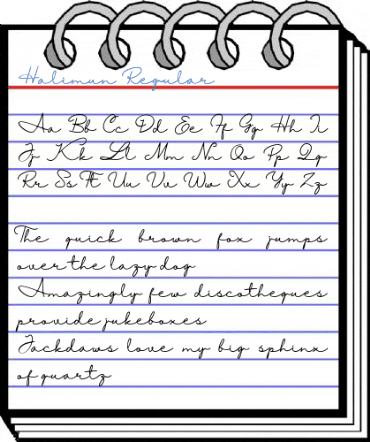 Halimun Regular
Aa Bb Cc Dd Ee Ff Gg Hh Ii
Jj Kk Ll Mm Nn Oo Pp Qq
Rr Ss Tt Uu Vv Ww Xx Yy Zz
The quick brown fox jumps
over the lazy dog
Amazingly few discotheques
provide jukeboxes
Jackdaws love my big sphinx
of quartz